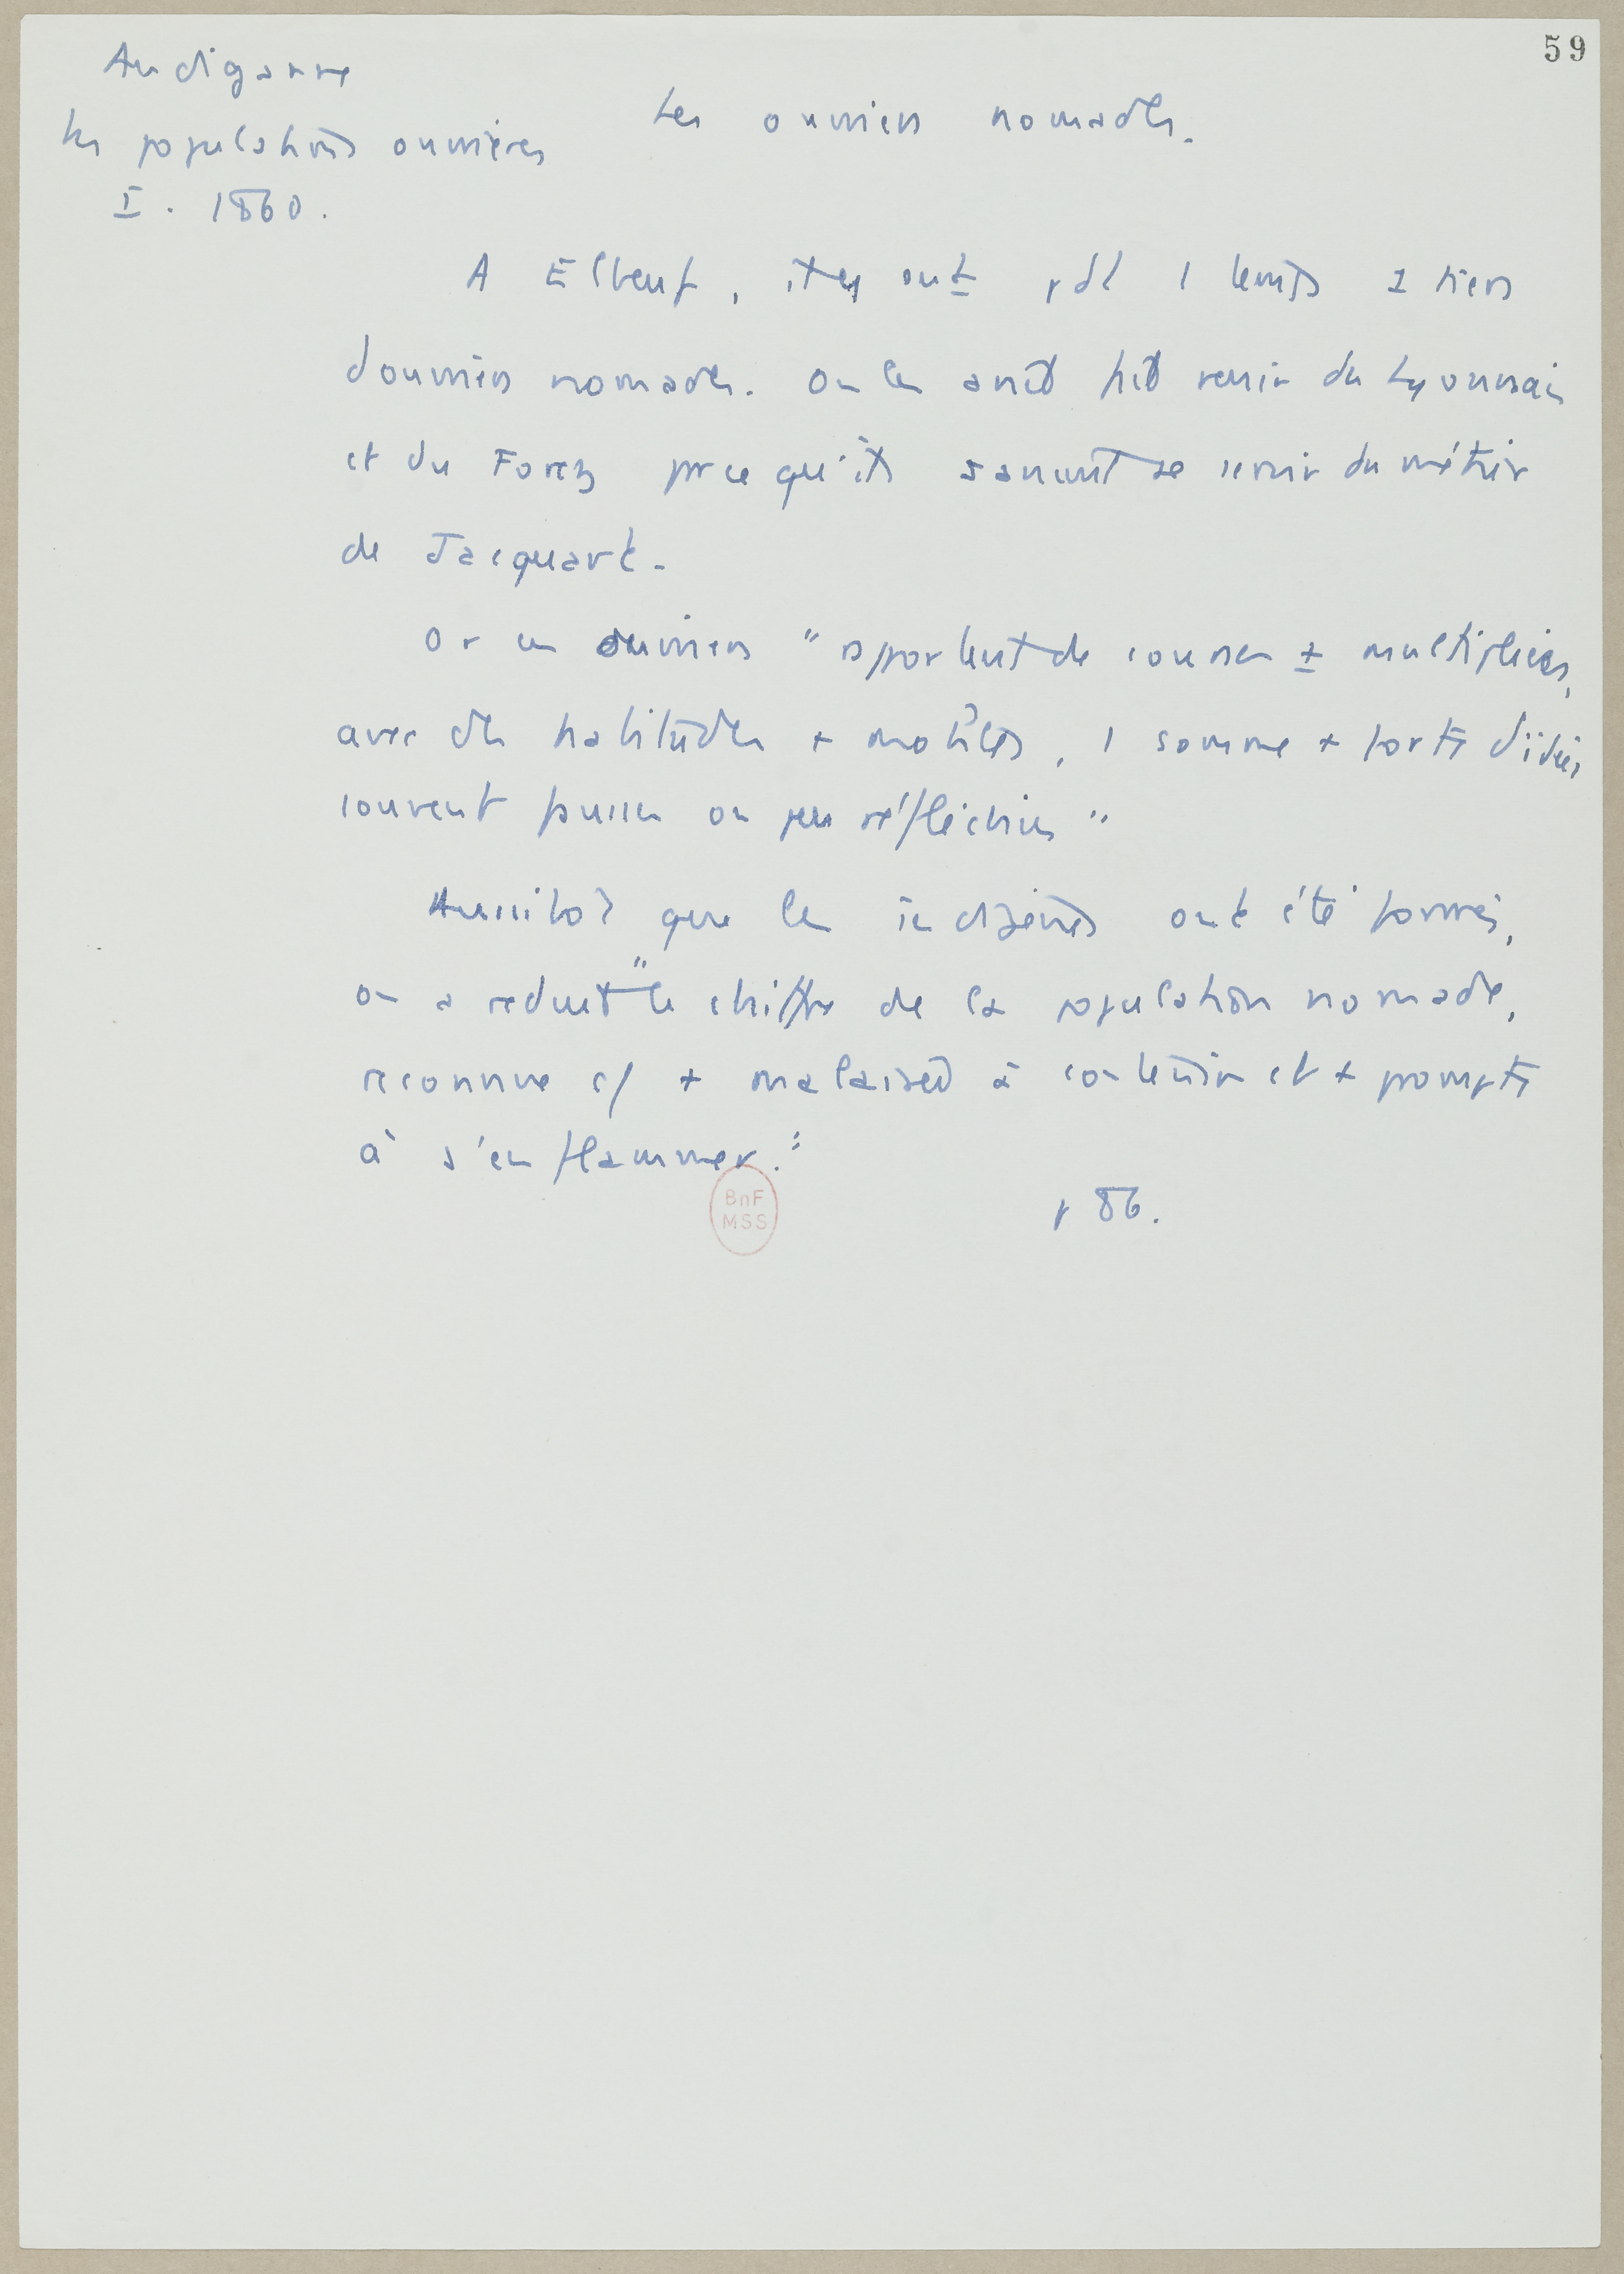 59
Audiganne
Les populations ouvrières
I. 1860.
Les ouvriers nomades.
A Elbeuf, il y eut pdt 1 temps 1 tiers
d'ouvriers nomades. On les avait fait venir du Lyonnais
et du Forez parce qu'ils savaient se servir du métier
de Jacquart.
Or ces ouvriers "apportent des connces + multipliées,
avec des habitudes + mobiles, 1 somme + forte d'idées
souvent fausses ou peu réfléchies"
Aussitôt que les indigènes ont été formés,
on a réduit "le chiffre de la population nomade,
reconnue c/ + malaisée à contenir et + prompte
à s'enflammer."
p 86.
BnF
MSS